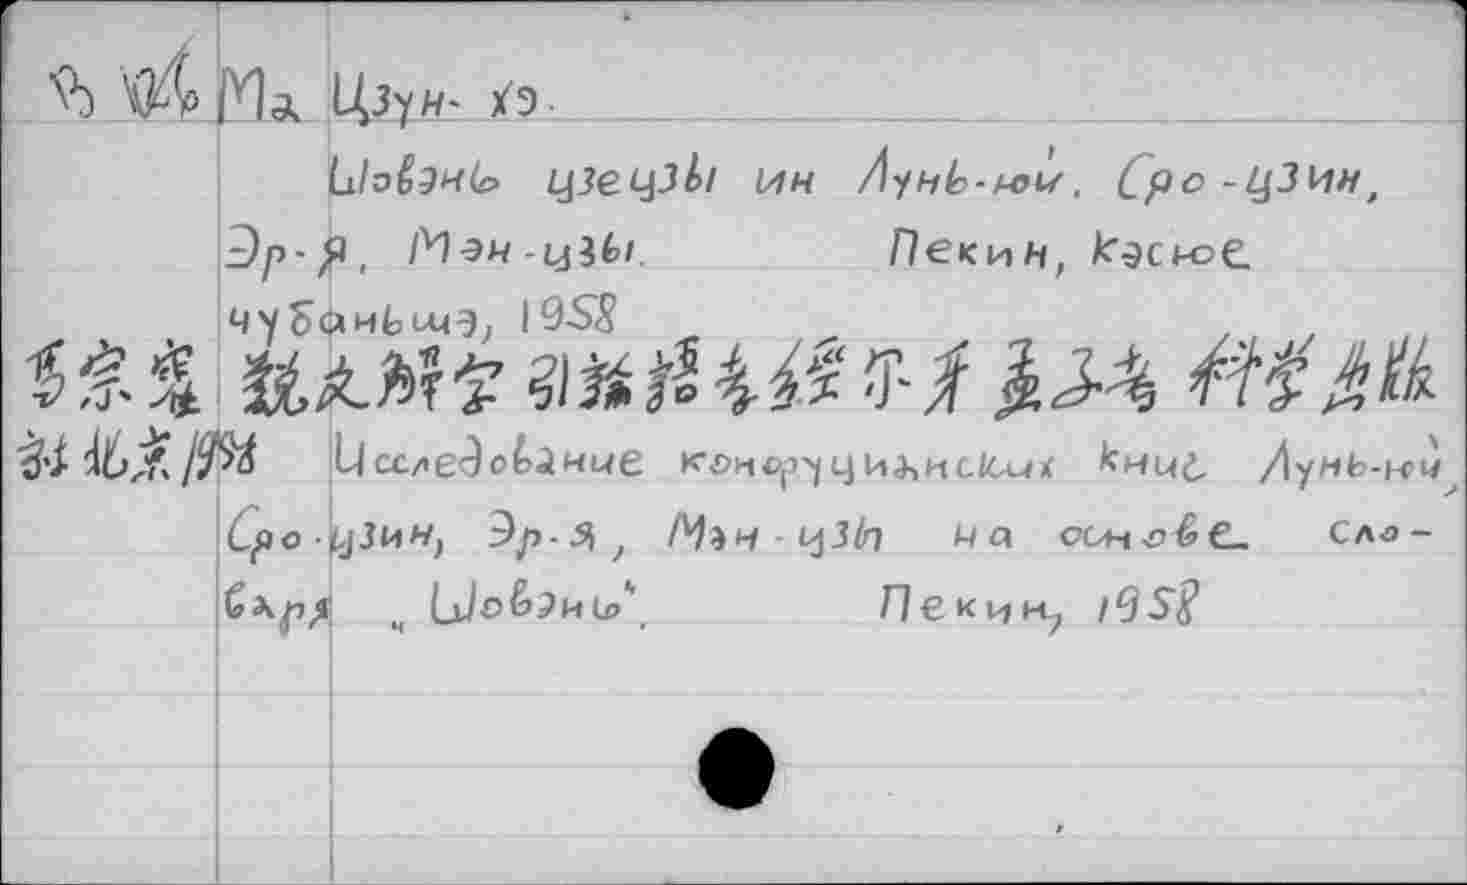 Ма Цзун-хэ.
Шовэнь цзецзы ин Лунь-юй. Сяо-цзин,
Эр-я, Мэн-цзы. Пекин, Кэсюе
чубаньшэ, 1958
馬宗霍 說文解字引論語孝經尔疋孟子考 科學出版
社 北京 1958 Исследование конфуцианских книг Лунь-юй,
Сяо-цзин, Эр-я, Мэн-цзы на основе сло-
варя „Шовэнь". Пекин, 1958